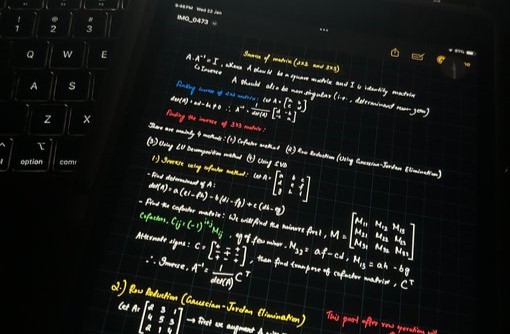 9:46 PM Wed 22 Jan
IMG_0473
Inverse of matrix (2x2 and 3x3)
A.A⁻¹ = I, where A should be a square matrix and I is identity matrix
↳ Inverse A should also be non-singular (i.e., determinant non-zero)
Finding inverse of 2x2 matrix: Let A = [a b; c d]
det(A) = ad - bc ≠ 0 ∴ A⁻¹ = 1/det(A) [d -b; -c a]
Finding the inverse of 3x3 matrix:
There are mainly 4 methods: (1) Cofactor method (2) Row Reduction (Using Gaussian-Jordan Elimination)
(3) Using LU Decomposition method (4) Using SVD
1) Inverse using cofactor method: Let A = [a b c; d e f; g h i]
- Find determinant of A:
det(A) = a(ei - fh) - b(di - fg) + c(dh - eg)
- Find the cofactor matrix: We will find the minors first, M = [M₁₁ M₁₂ M₁₃; M₂₁ M₂₂ M₂₃; M₃₁ M₃₂ M₃₃]
Cofactors, Cᵢⱼ = (-1)ⁱ⁺ʲ Mᵢⱼ
Alternate signs: C = [+ - +; - + -; + - +], then find transpose of cofactor matrix, Cᵀ
∴ Inverse, A⁻¹ = 1/det(A) Cᵀ
2) Row Reduction (Gaussian-Jordan Elimination)
Let A = → First we augment A
This part after row operations will
!
1
@
2
#
3
Q
W
E
A
S
Z
X
⌥
option
com